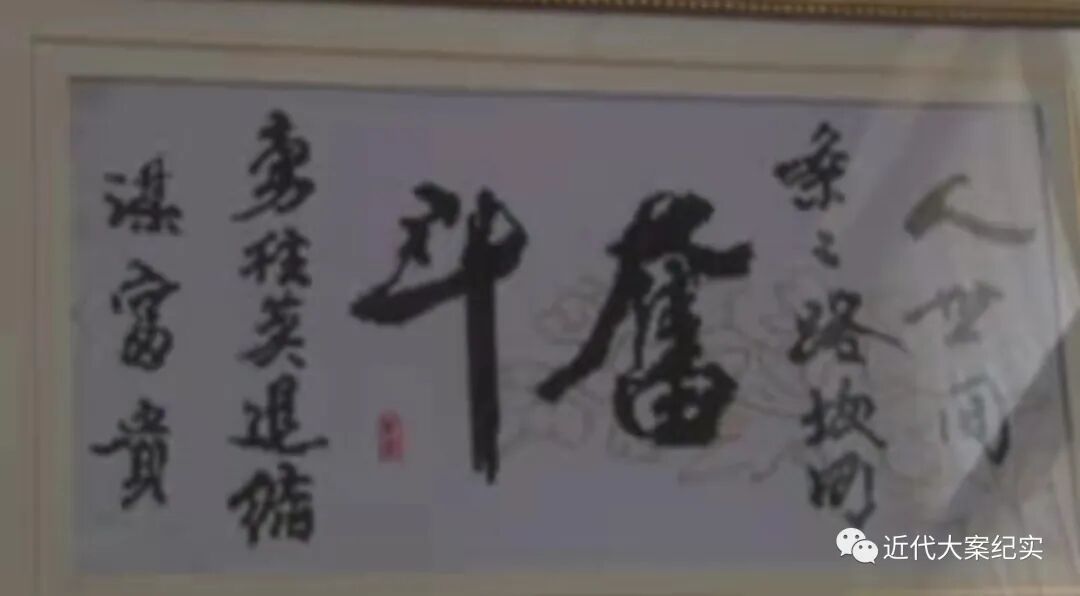 人世间
条々路坎坷
奮斗
勇往莫退缩
谋富贵
近代大案纪实